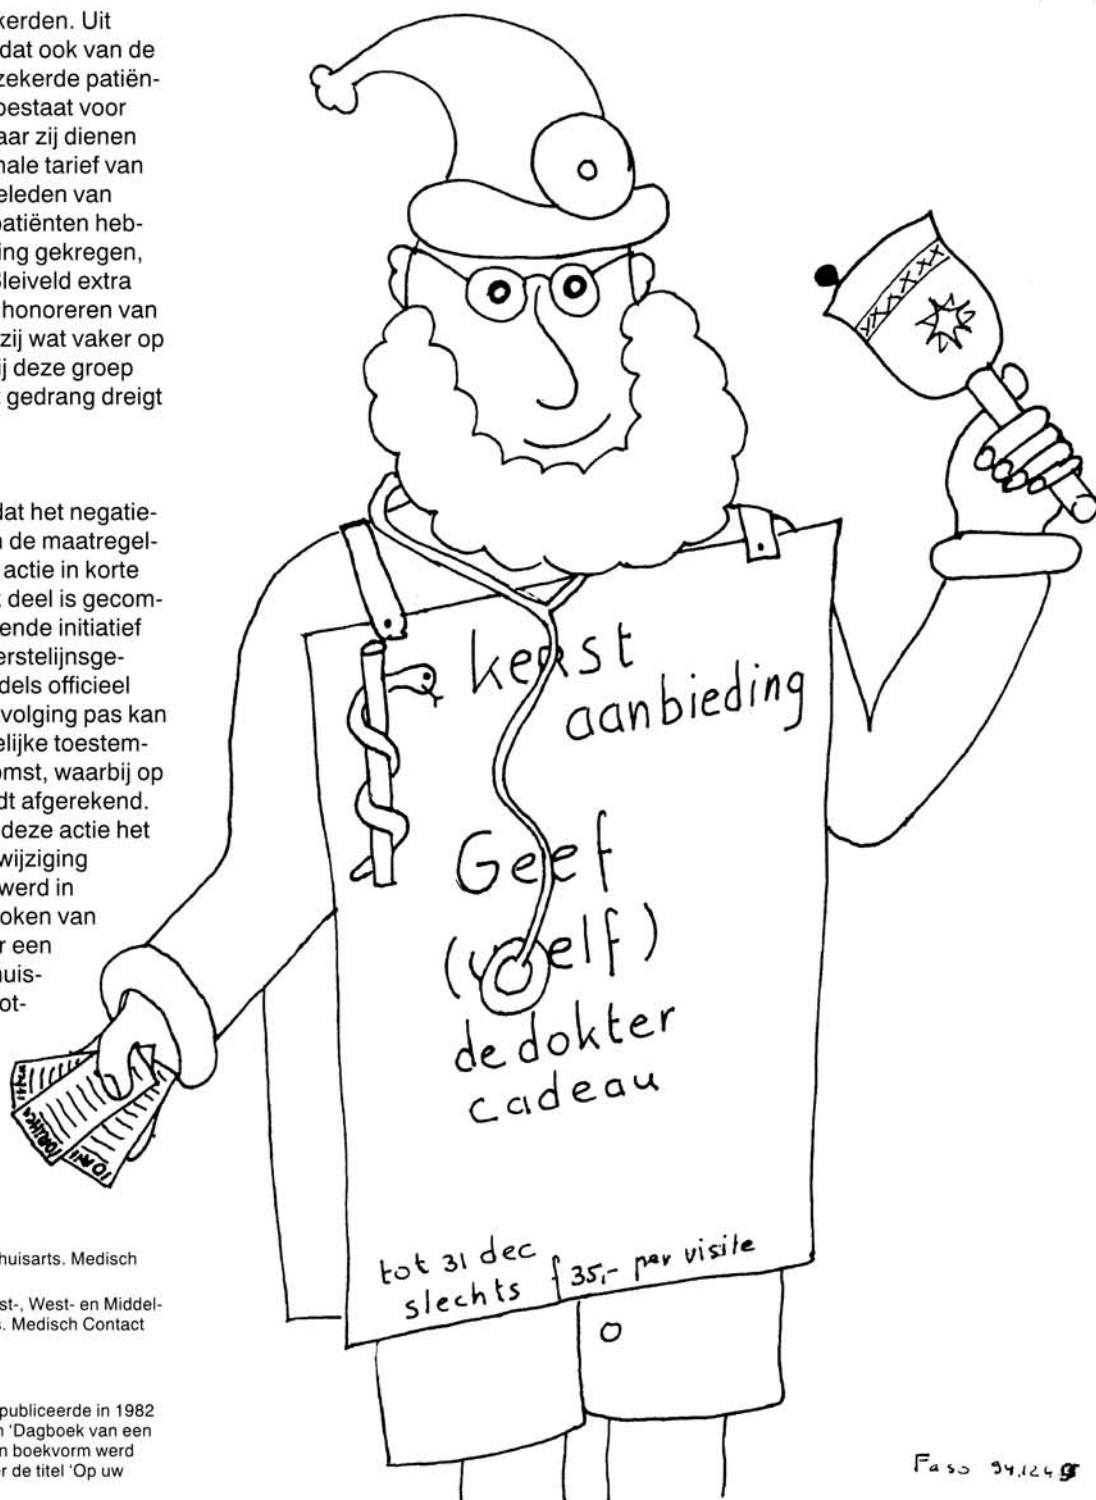 kerden. Uit
dat ook van de
zekerde patiën-
bestaat voor
aar zij dienen
nale tarief van
eleden van
patiënten heb-
ing gekregen,
Bleiveld extra
honoreren van
zij wat vaker op
ij deze groep
t gedrang dreigt
dat het negatie-
n de maatregel-
actie in korte
t deel is gecom-
ende initiatief
erstelijnsge-
dels officieel
volging pas kan
elijke toestem-
omst, waarbij op
dt afgerekend.
deze actie het
wijziging
werd in
oken van
r een
huis-
ot-
huisarts. Medisch
st-, West- en Middel-
s. Medisch Contact
publiceerde in 1982
n 'Dagboek van een
n boekvorm werd
r de titel 'Op uw
kerst
aanbieding
Geef
(uzelf)
de dokter
cadeau
tot 31 dec
slechts f 35,- per visite
XXXXXX
Faso